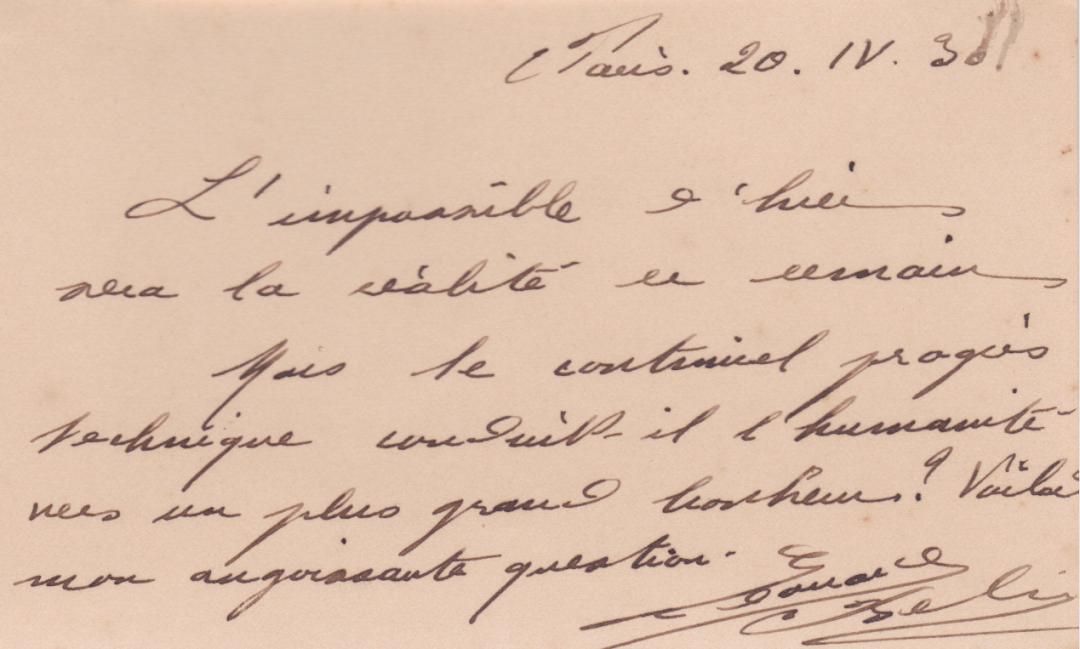 Paris. 20. IV. 30
L'impossible d'hier
sera la réalité de demain
Mais le continuel progrès
technique conduit-il l'humanité
vers un plus grand bonheur? Voilà
mon angoissante question.
Edouard
Belin